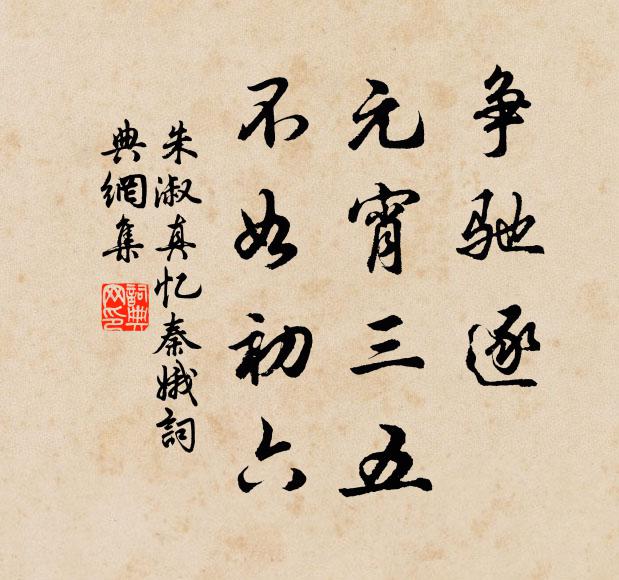 争馳逐
元宵三五
不如初六
朱淑真忆秦娥詞
典網集
詞典
网印